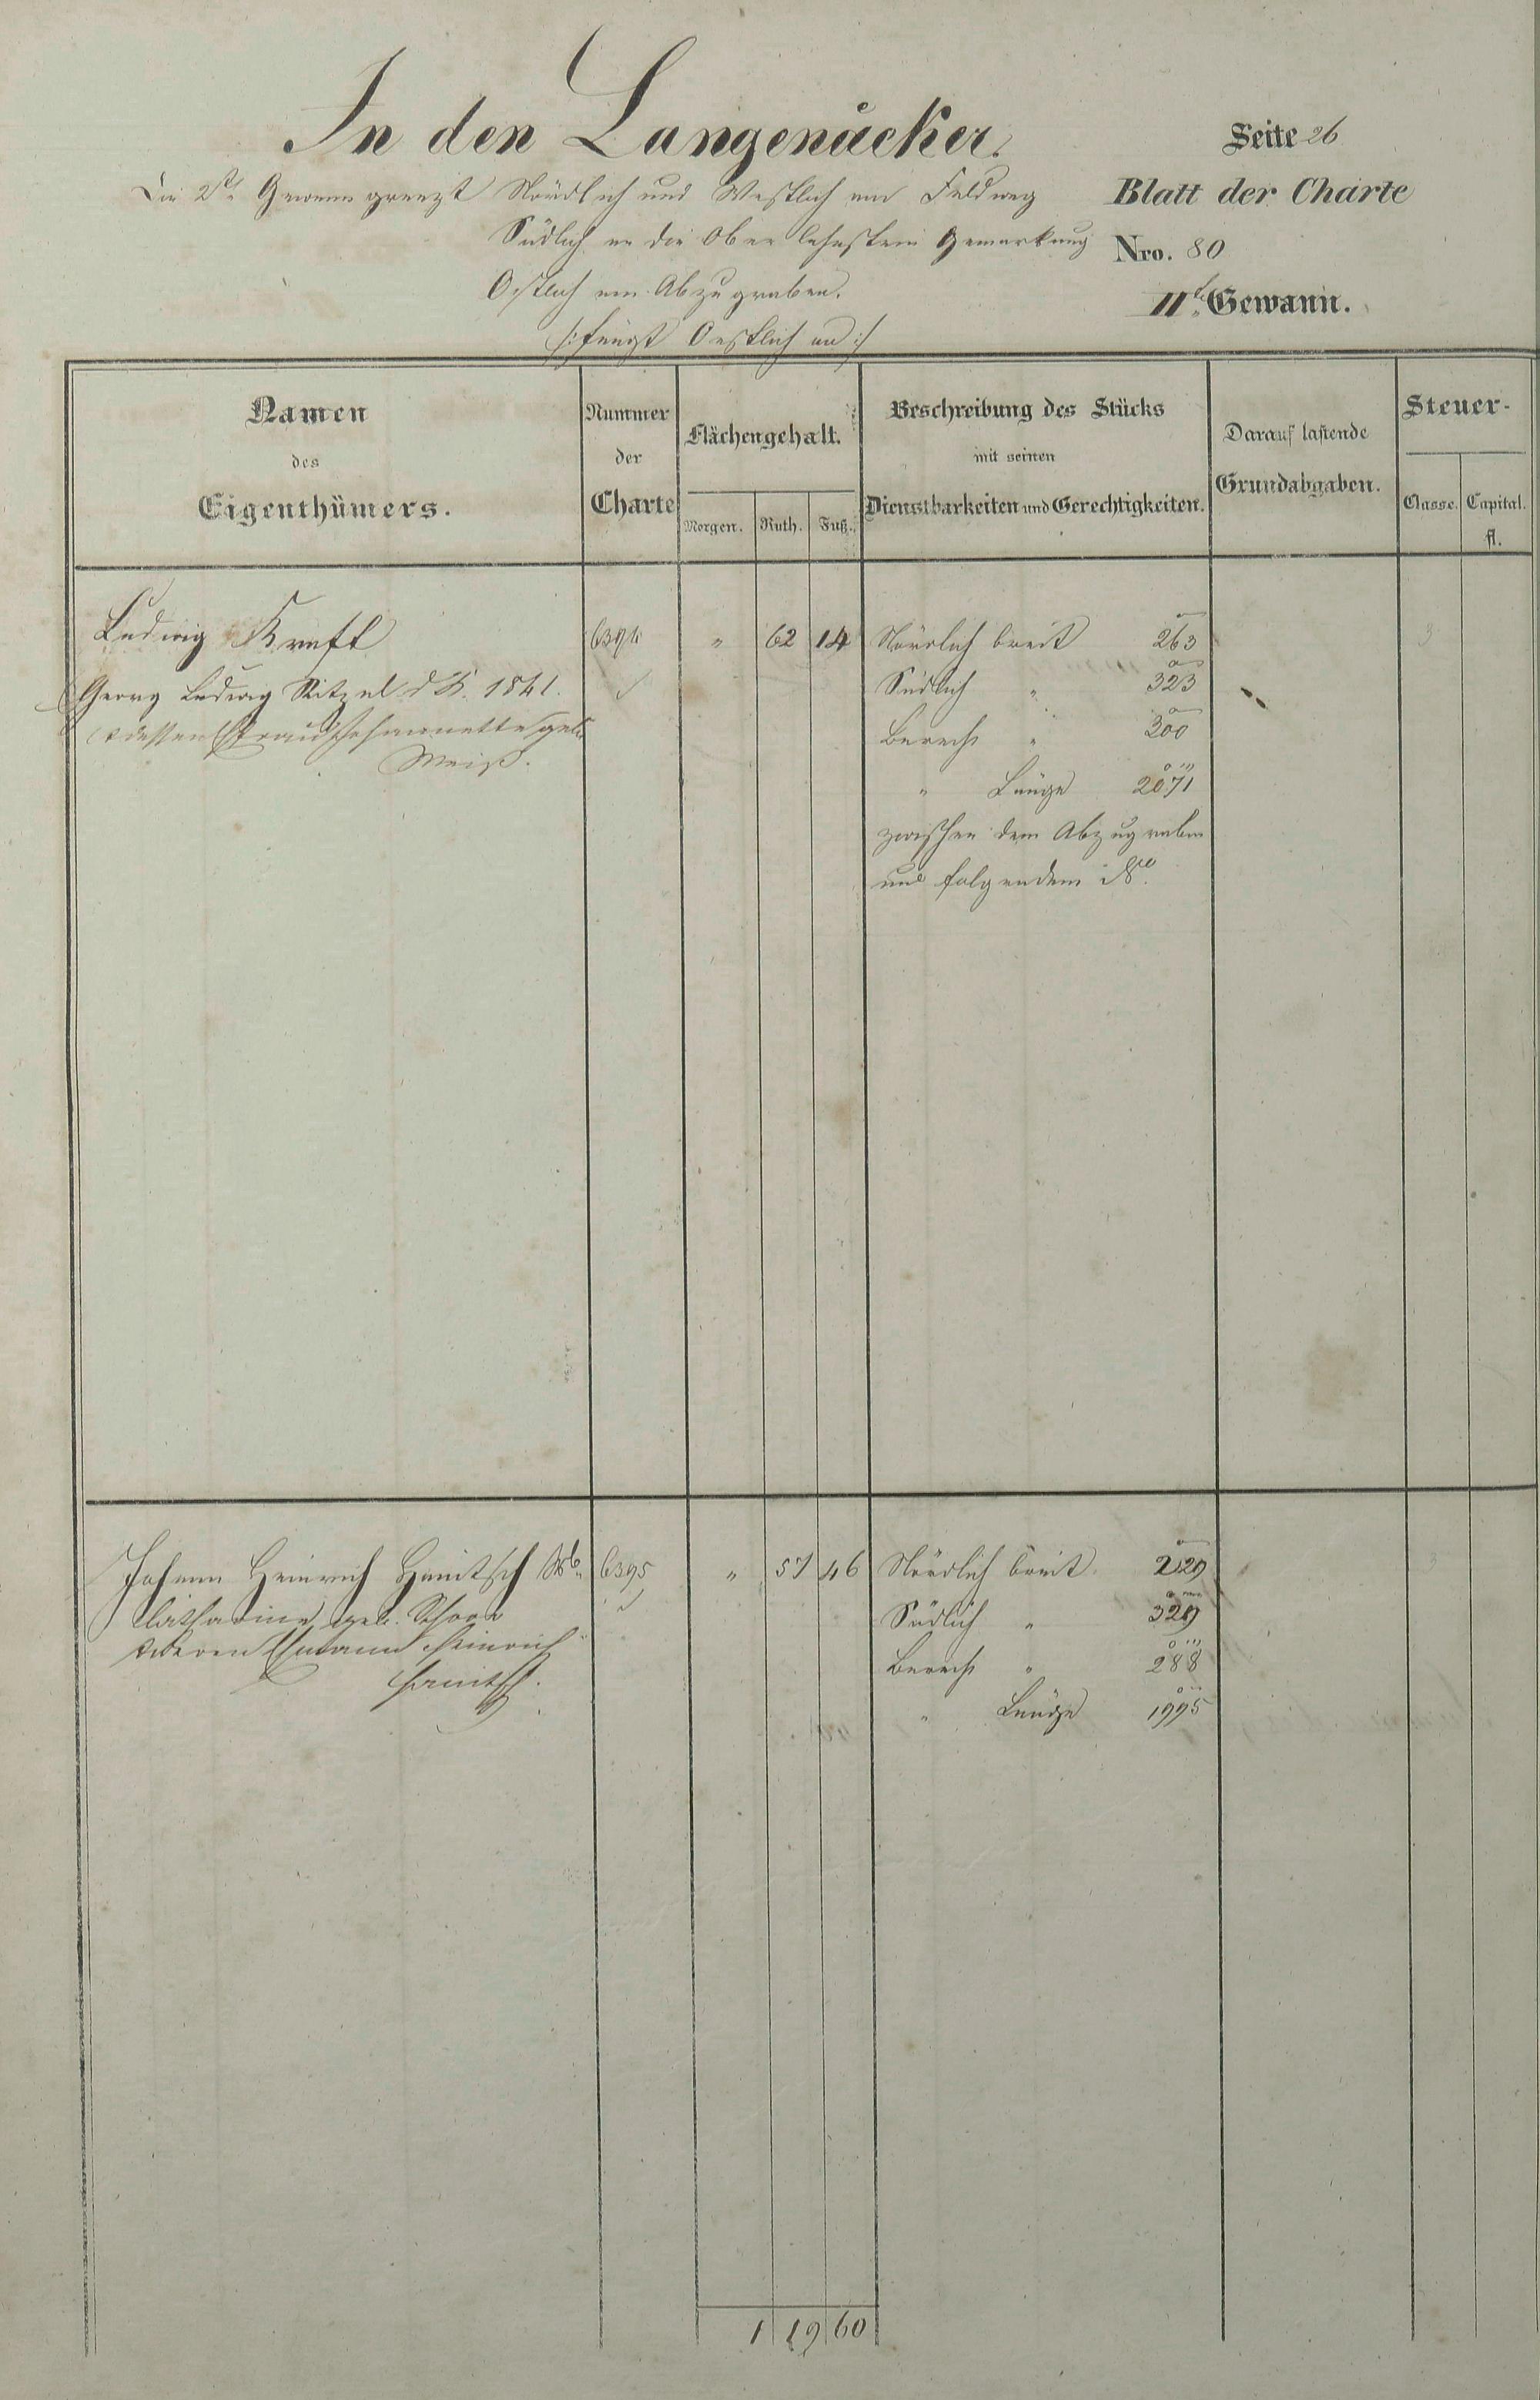 In den Langenäcker.
Seite 26
Die 2te Gewann grenzt Nördlich und Westlich am Feldweg
Blatt der Charte
Südlich an die Oberlahnstein Gemarkung
Nro. 80
Östlich am Abzugraben.
IIt. Gewann.
/: fängt Oestlich an :/
Namen
des
Eigenthümers.
Nummer
der
Charte
Flächengehalt.
Morgen. Ruth. Fuß.
Beschreibung des Stücks
mit seinen
Dienstbarkeiten und Gerechtigkeiten.
Darauf lastende
Grundabgaben.
Steuer-
Classe. Capital.
fl.
Ludwig Kraft 6394 " 62 14 Nördlich breit 263 3
Georg Ludwig d K. 1841. Südlich " 323
dessen geb. Berech " 300
Weiß. " Länge 2071
zwischen dem Abzugraben
und folgendem No.
Johann Heinrich 6395 " 57 46 Nördlich breit 2429 3
Catharine geb. Südlich " 329
deren Ehmann Heinrich Berech " 288
" Länge 1995
1 19 60